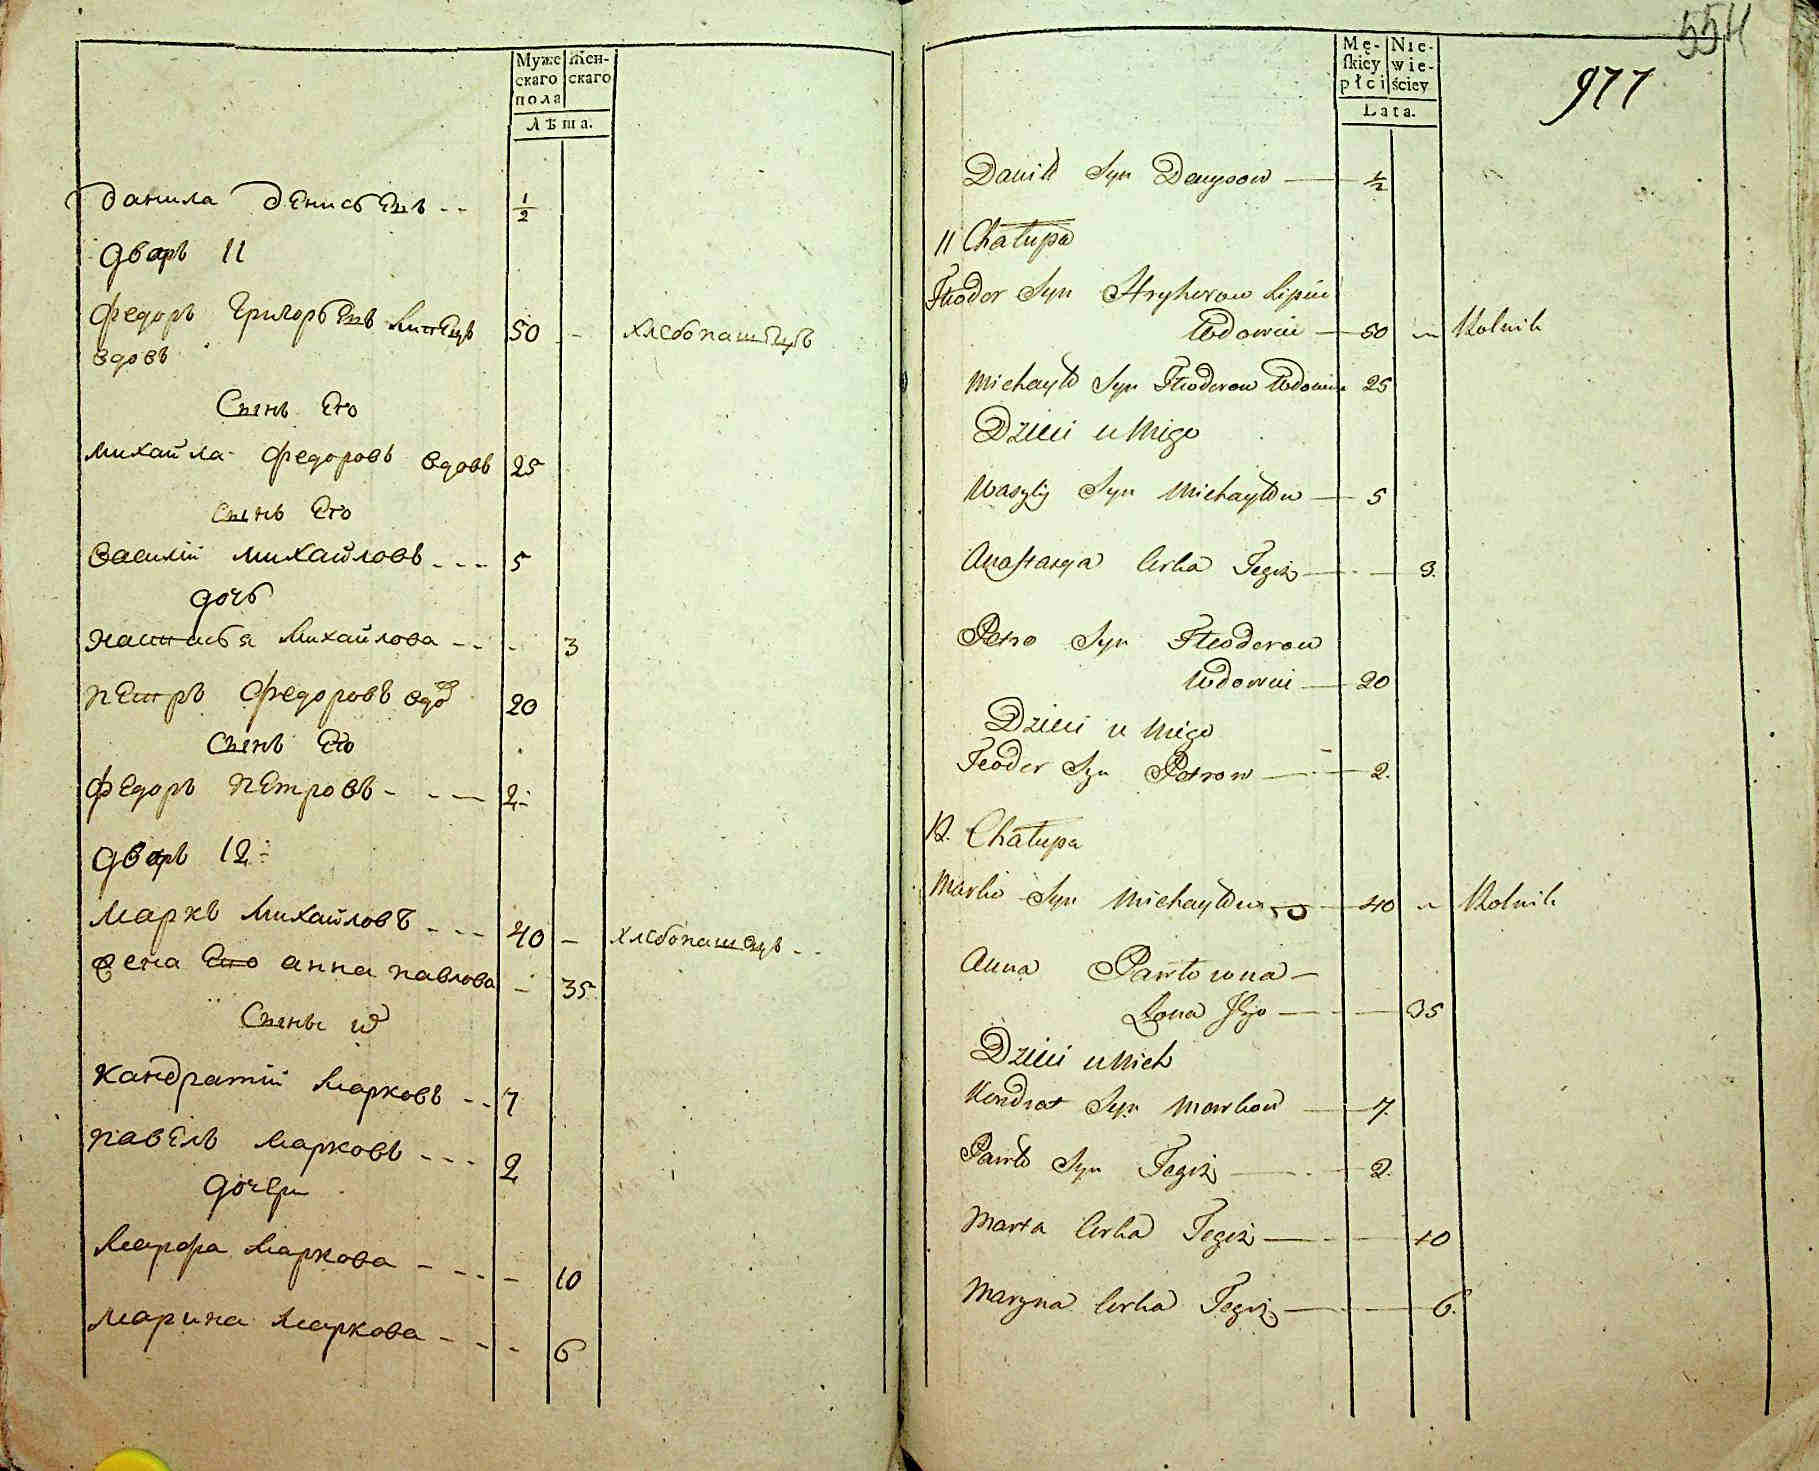 Муже
скаго
пола
Жен-
скаго
Лѣта.
Данила Денисьевъ
1/2
Дворъ 11
Федоръ Григорьевъ Липецъ
вдовъ
50 - хлебопашецъ
Сынъ Его
Михайла Федоровъ вдовъ 25
Сынъ Его
Василій Михайловъ 5
дочь
Настасья Михайлова - 3
Петръ Федоровъ вдов 20
Сынъ Его
Федоръ Петровъ 2
Дворъ 12
Маркъ Михайловъ 40 - хлебопашецъ
жена Его анна павлова - 35
Сыны их
Кандратій Марковъ 7
Павелъ Марковъ 2
Дочери
Марфа Маркова - 10
Марина Маркова - 6
554
977
Mę-
skiey
płci
Nie-
wie-
ściey
Lata.
Daniło Syn Denysow 1/2
11 Chałupa
Fteodor Syn Hryhorow Lipiec
Wdowiec 50 Rolnik
Michayło Syn Fteodorow Wdowiec 25
Dzieci u Niego
Wasyly Syn Michayłow 5
Anastasya Corka Tegiż 3.
Petro Syn Fteodorow
Wdowiec 20
Dzieci u Niego
Feodor Syn Petrow 2.
12. Chałupa
Marko Syn Michayłow 40 Rolnik
Anna Pawłowna
Żona Jego 35
Dzieci u Nich
Kondrat Syn Markow 7.
Pawło Syn Tegiż 2.
Marta Corka Tegiż 10
Maryna Corka Tegiż 6.